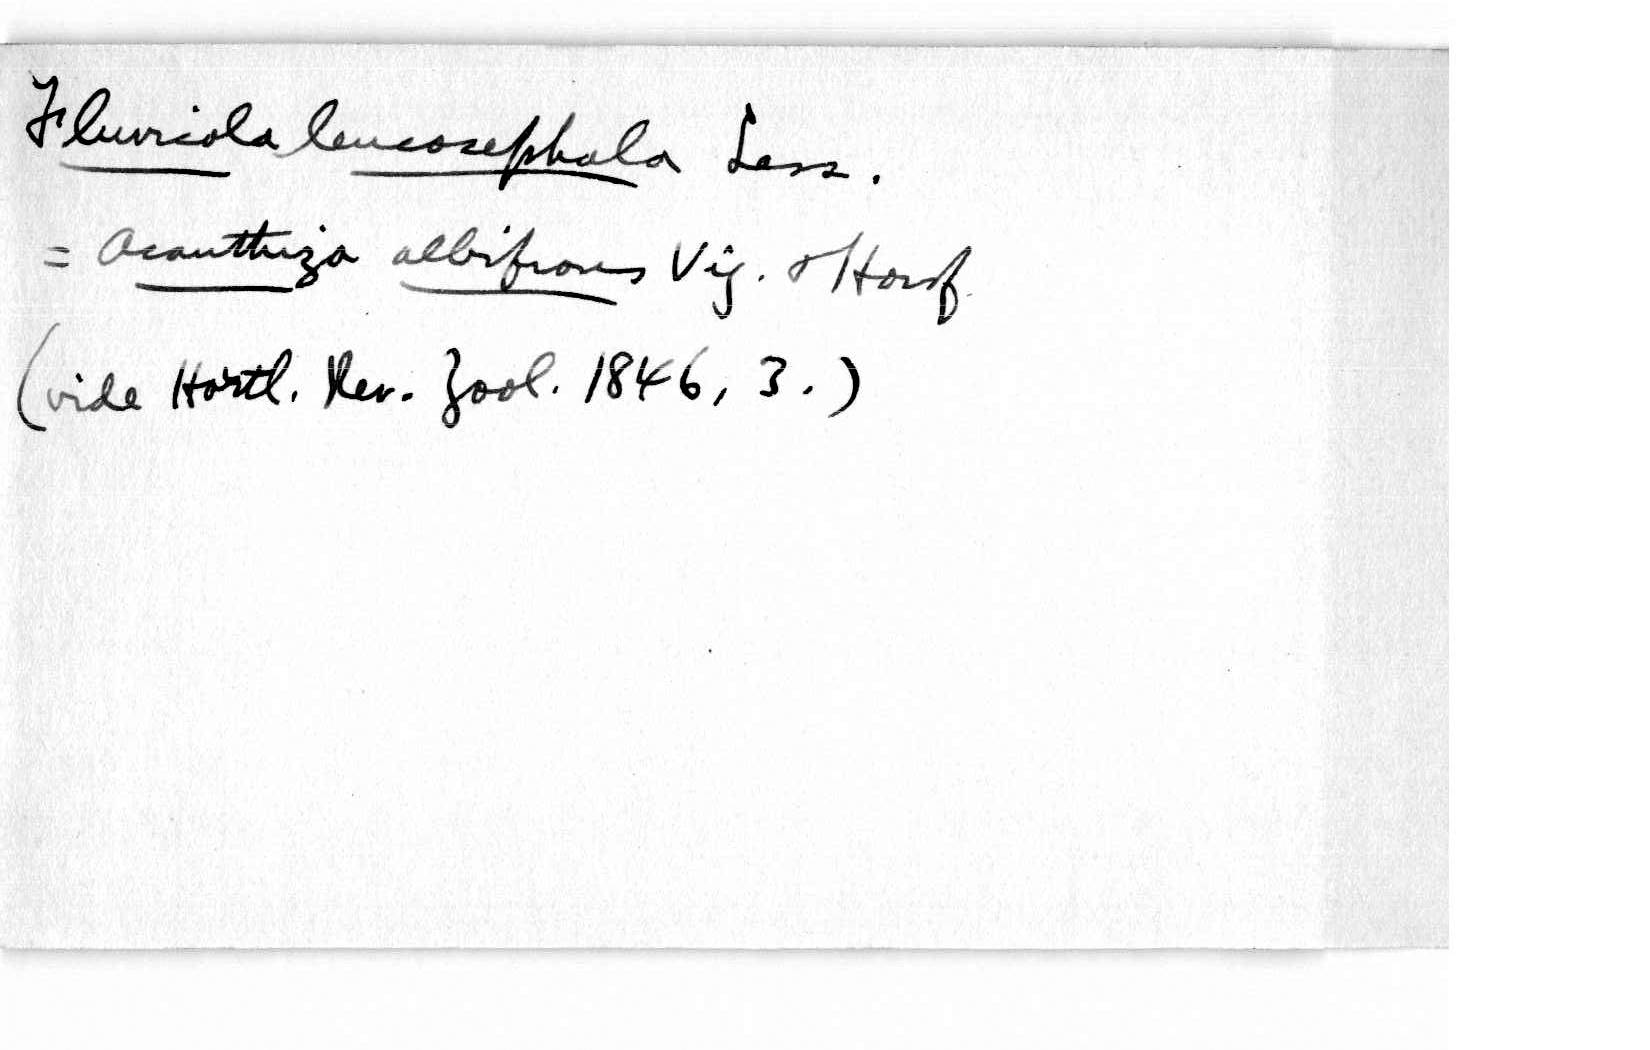 Fluvicola leucocephala Less.
= Acanthiza albifrons Vig. & Horsf.
(vide Hartl. Rev. Zool. 1846, 3.)